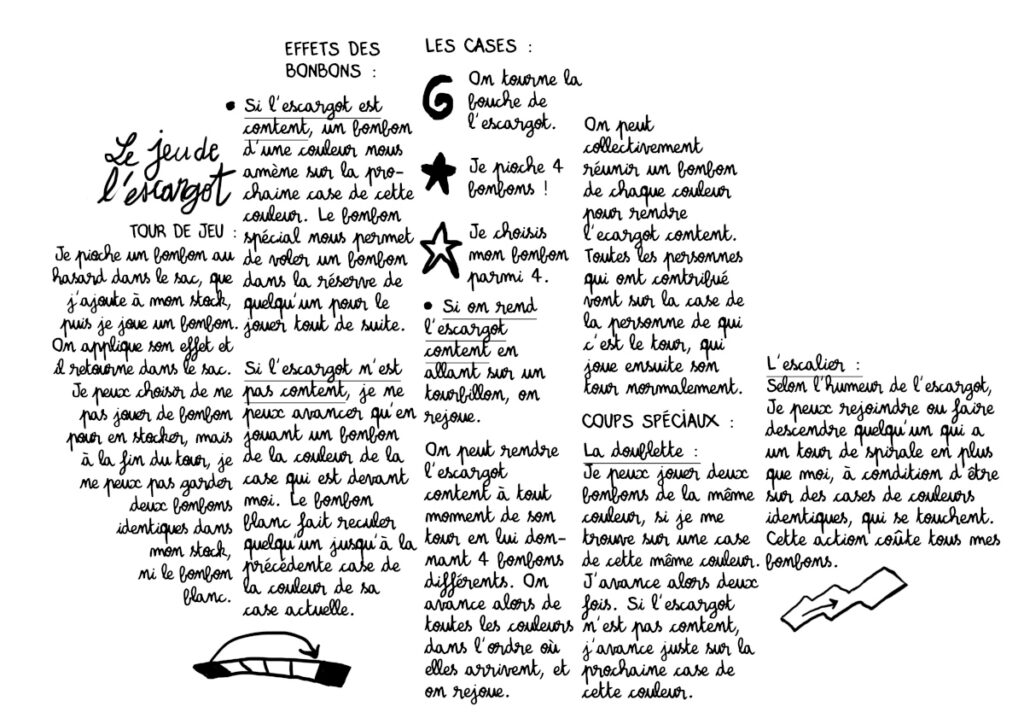 Le jeu de
l'escargot
TOUR DE JEU :
Je pioche un bonbon au
hasard dans le sac, que
j'ajoute à mon stock,
puis je joue un bonbon.
On applique son effet et
il retourne dans le sac.
Je peux choisir de ne
pas jouer de bonbon
pour en stocker, mais
à la fin du tour, je
ne peux pas garder
deux bonbons
identiques dans
mon stock,
ni le bonbon
blanc.
EFFETS DES
BONBONS :
• Si l'escargot est
content, un bonbon
d'une couleur nous
amène sur la pro-
chaine case de cette
couleur. Le bonbon
spécial nous permet
de voler un bonbon
dans la réserve de
quelqu'un pour le
jouer tout de suite.
Si l'escargot n'est
pas content, je ne
peux avancer qu'en
jouant un bonbon
de la couleur de la
case qui est devant
moi. Le bonbon
blanc fait reculer
quelqu'un jusqu'à la
précédente case de
la couleur de sa
case actuelle.
LES CASES :
On tourne la
bouche de
l'escargot.
Je pioche 4
bonbons !
Je choisis
mon bonbon
parmi 4.
• Si on rend
l'escargot
content en
allant sur un
tourbillon, on
rejoue.
On peut rendre
l'escargot
content à tout
moment de son
tour en lui don-
nant 4 bonbons
différents. On
avance alors de
toutes les couleurs
dans l'ordre où
elles arrivent, et
on rejoue.
On peut
collectivement
réunir un bonbon
de chaque couleur
pour rendre
l'ecargot content.
Toutes les personnes
qui ont contribué
vont sur la case de
la personne de qui
c'est le tour, qui
joue ensuite son
tour normalement.
COUPS SPÉCIAUX :
La doublette :
Je peux jouer deux
bonbons de la même
couleur, si je me
trouve sur une case
de cette même couleur.
J'avance alors deux
fois. Si l'escargot
n'est pas content,
j'avance juste sur la
prochaine case de
cette couleur.
L'escalier :
Selon l'humeur de l'escargot,
Je peux rejoindre ou faire
descendre quelqu'un qui a
un tour de spirale en plus
que moi, à condition d'être
sur des cases de couleurs
identiques, qui se touchent.
Cette action coûte tous mes
bonbons.